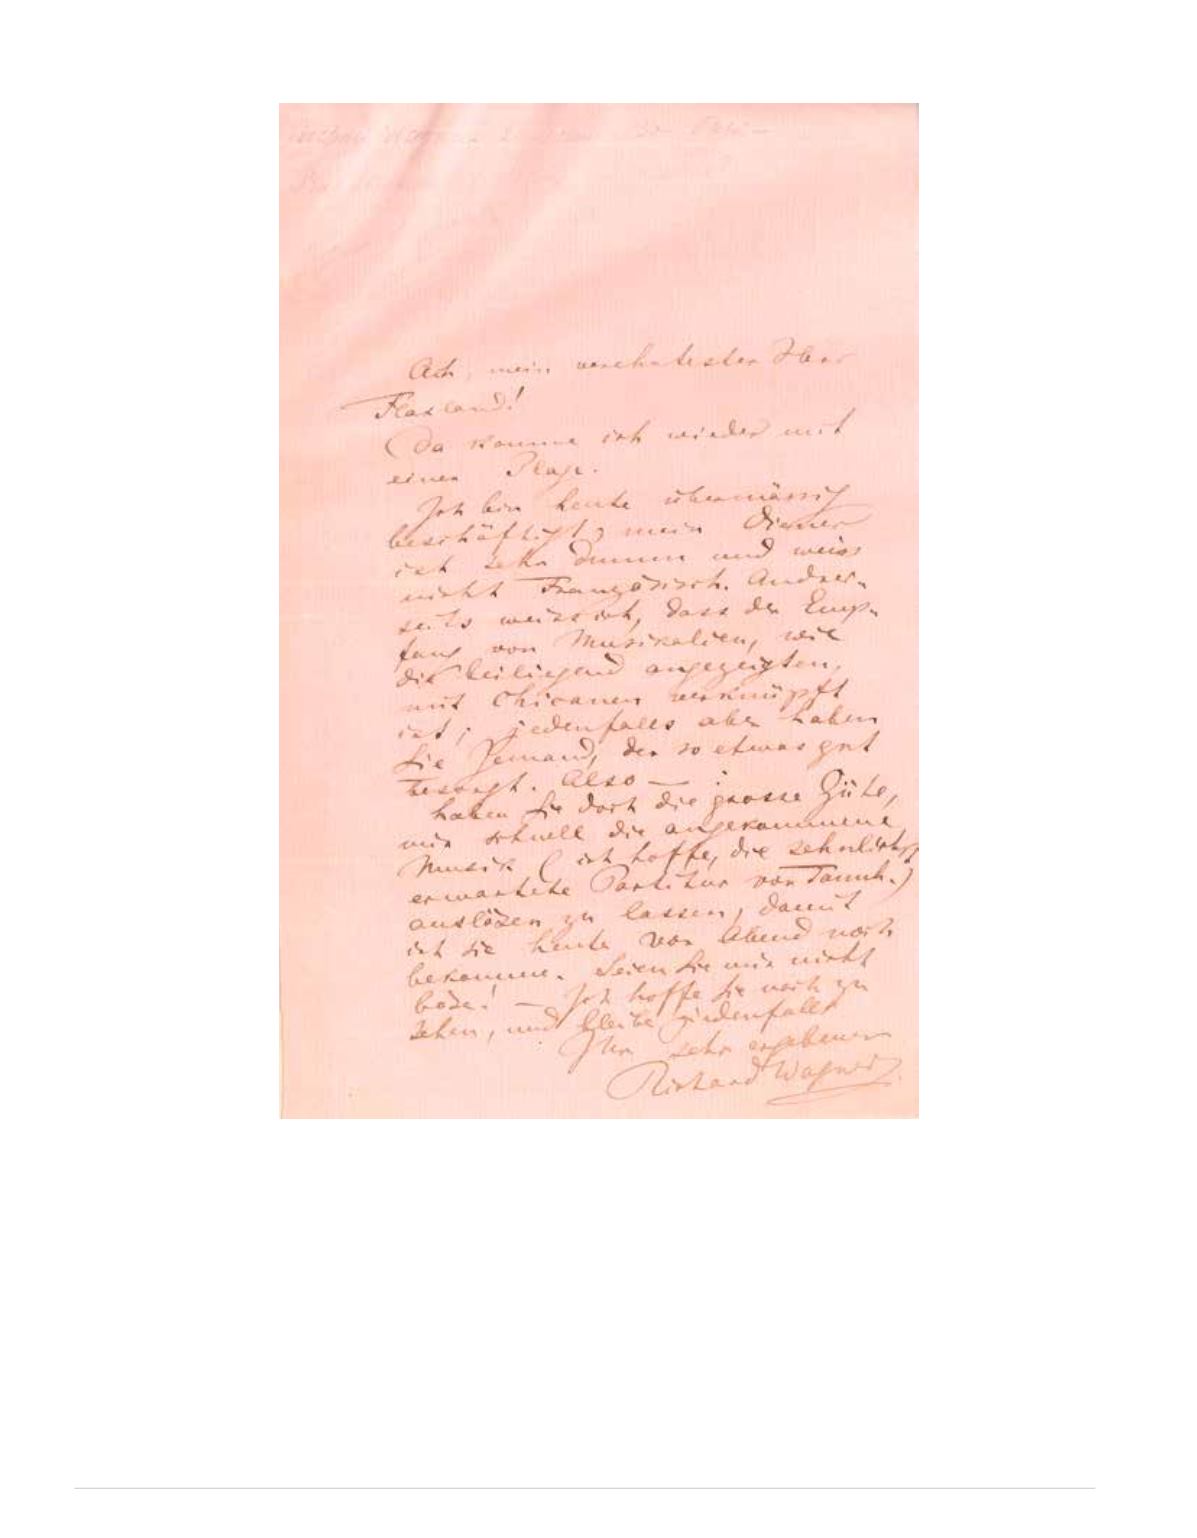 Ach, mein verehrtester Herr
Flaxland!
Da komme ich wieder mit
einer Plage.
Ich bin heute übermässig
beschäftigt, mein Diener
ist sehr dumm und weiss
nicht Französisch. Andrer-
seits weiss ich, dass der Emp-
fang von Musikalien, wie
die beiliegend angezeigten,
mit Chicanen verknüpft
ist; jedenfalls aber haben
Sie Jemand, der so etwas gut
besorgt. Also — :
haben Sie doch die grosse Güte,
mir schnell die angekommene
Musik (ich hoffe, die sehnlichst
erwartete Partitur von Tannh.)
auslösen zu lassen, damit
ich sie heute vor Abend noch
bekomme. Seien Sie mir nicht
böse! — Ich hoffe Sie noch zu
sehen, und bleibe jedenfalls
Ihr sehr ergebener
Richard Wagner.